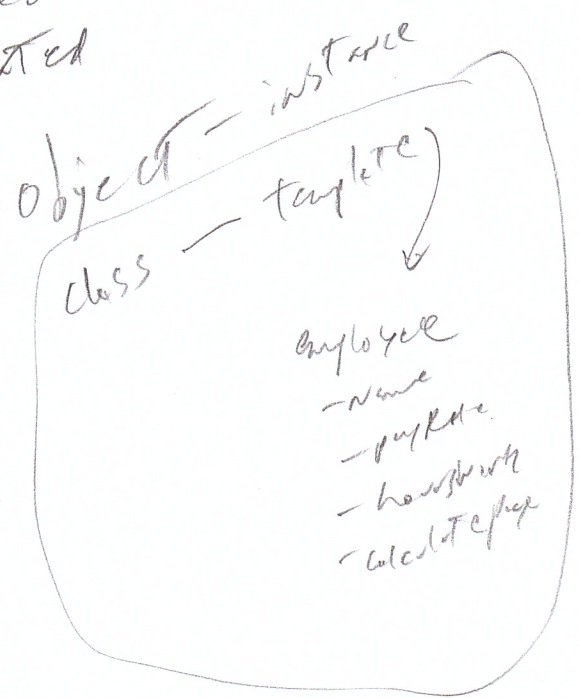 object - instance
class - template
employee
- Name
- payRate
- hoursWork
- calculatepay